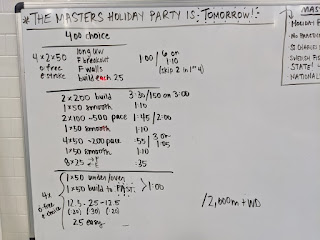 THE MASTERS HOLIDAY PARTY IS TOMORROW!
400 choice
4x2x50
o: free
e: stroke
long/low
F breakout
F walls
build each 25
1:00 / 6 on
1:10
(skip 2 in 1st 4)
2x200 build 3:30/150 on 3:00
1x50 smooth 1:10
2x100 -500 pace 1:45/2:00
1x50 smooth 1:10
4x50 -200 pace :55 / 3 on 1:05
1x50 smooth 1:10
8x25 :35
4x
o: free
e: choice
1x50 under/over
1x50 build to FAST
>1:00
12.5 - 25 - 12.5
(:20) (:30) (:20)
25 easy
/2,600m + WD
* MAS
HOLIDAY P
NO PRACTIC
SC CHAMPS
SWEDISH FIS
STATE!
NATIONAL